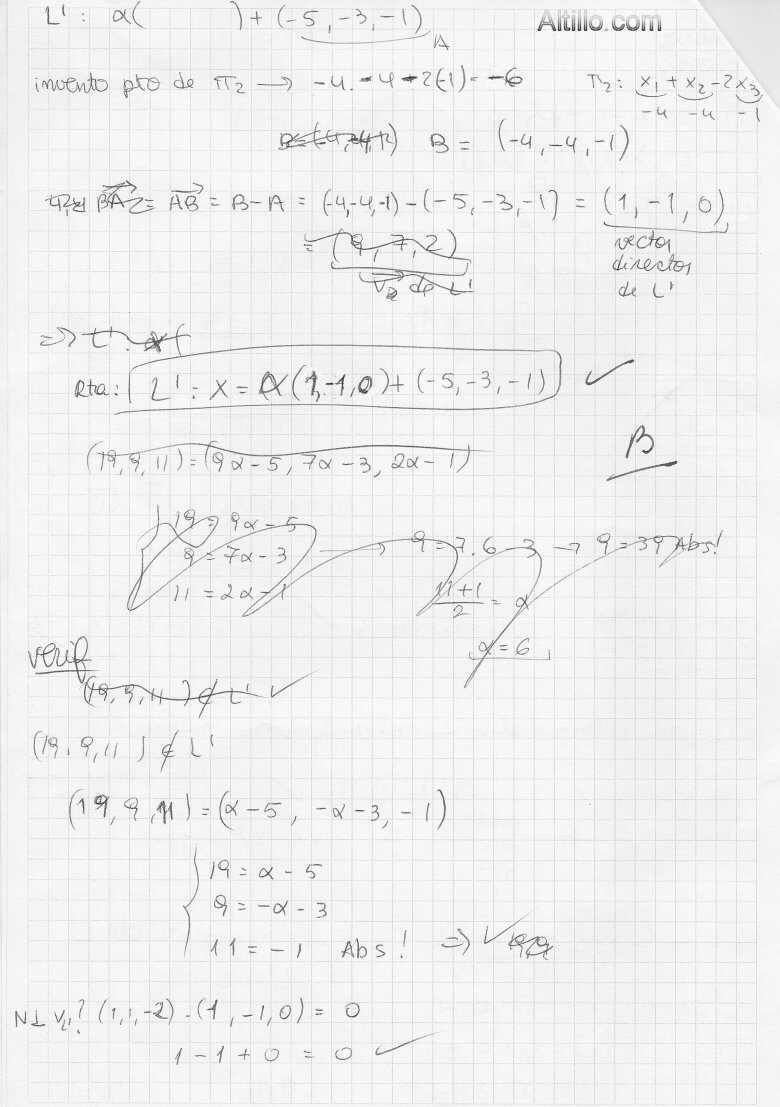 L' : α(          ) + (-5, -3, -1)
A
Altillo.com
invento pto de π₂ → -4 - 4 - 2(-1) = -6
π₂: x₁ + x₂ - 2x₃
-4 -4 -1
B = (-4, -4, -1)
BA = AB = B - A = (-4,-4,-1) - (-5, -3, -1) = (1, -1, 0)
= (9, 7, 2)
v₂ de L'
vector
director
de L'
⇒ L': α(
Rta: L' : X = α(1,-1,0) + (-5, -3, -1) ✓
B
(19, 9, 11) = (9α-5, 7α-3, 2α-1)
19 = 9α - 5
9 = 7α - 3 → 9 = 7.6 - 3 → 9 = 39 Abs!
11 = 2α - 1
(11+1)/2 = α
α = 6
verif
(19, 9, 11) ∉ L' ✓
(19, 9, 11) ∉ L'
(19, 9, 11) = (α-5, -α-3, -1)
19 = α - 5
9 = -α - 3
11 = -1 Abs! ⇒ ✓
N⊥ v_L'? (1,1,-2) . (1, -1, 0) = 0
1 - 1 + 0 = 0 ✓